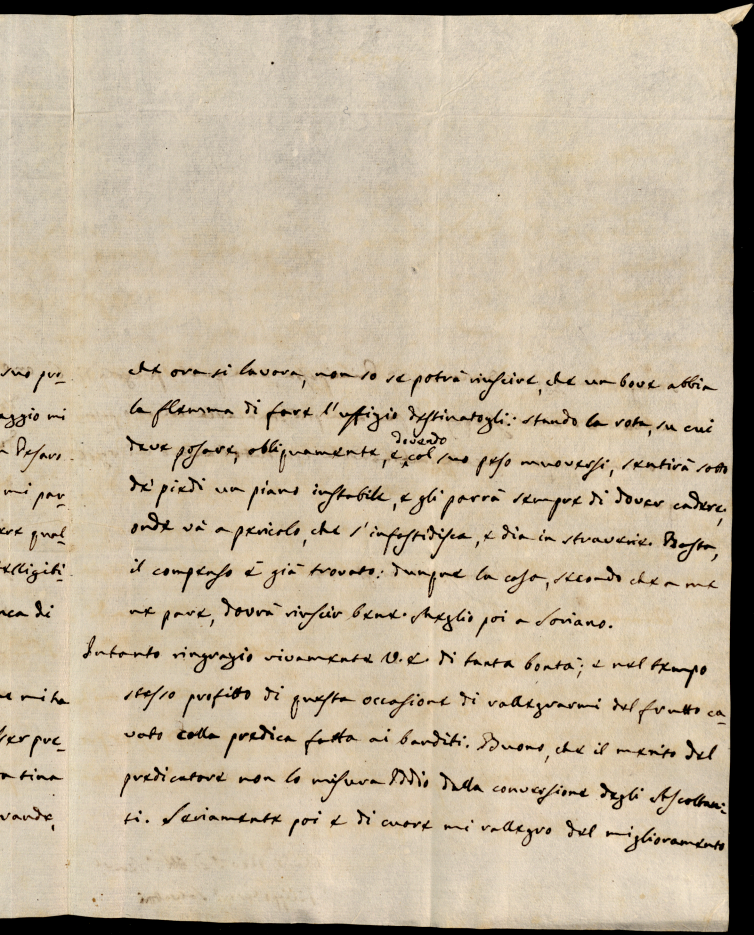 suo pro-
aggio mi
a Pesaro
mi par-
ere qual-
telligibi-
nca di
ne mita
ser pre-
a tina
vande,
che ora si lavora, non so se potrà riuscire, che un bove abbia
la flemma di fare l'uffizio destinatogli: stando la rota, su cui
deve posare, obliquamente, e dovendo col suo peso muoversi, sentirà sotto
de' piedi un piano instabile, e gli parrà sempre di dover cadere;
onde và a pericolo, che s'infastidisca, e dia in straverie. Basta,
il compenso è già trovato: dunque la cosa, secondo che a me
ne pare, dovrà riuscir bene. Meglio poi a Soriano.
Intanto ringrazio vivamente V.E. di tanta bontà; e nel tempo
stesso profitto di questa occasione di rallegrarmi del frutto ca-
vato colla predica fatta ai banditi. Buono, che il merito del
predicatore non lo misura Iddio dalla conversione degli Ascoltan-
ti. Seriamente poi e di cuore mi rallegro del miglioramento